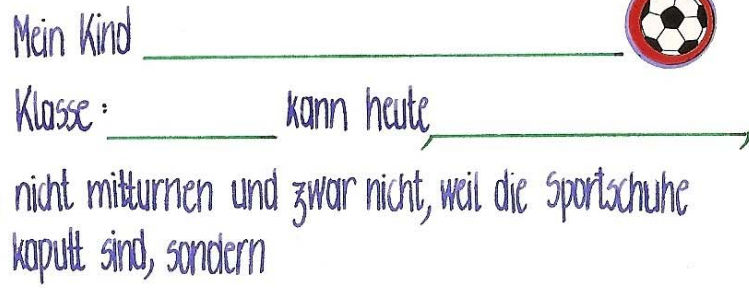 Mein Kind ____________
Klasse: ________ kann heute, ____________,
nicht mitturnen und zwar nicht, weil die Sportschuhe
kaputt sind, sondern